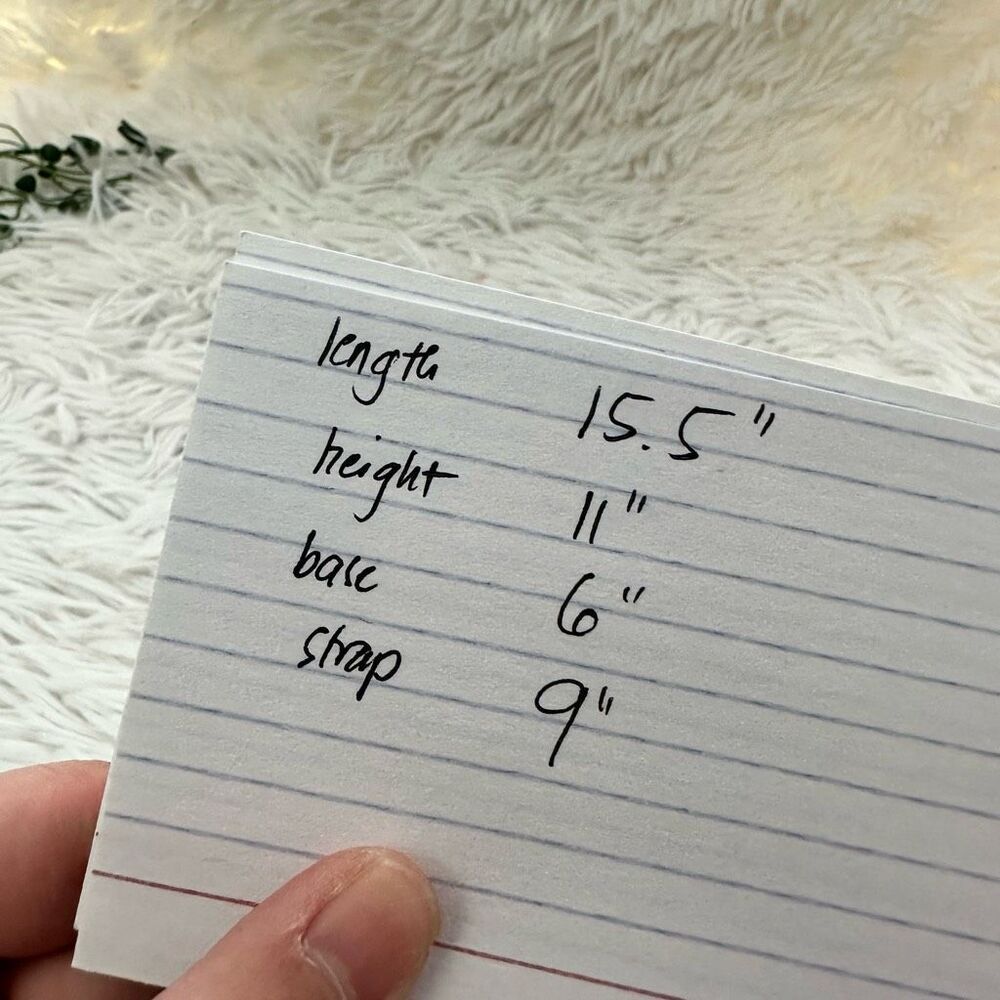 length 15.5"
height 11"
base 6"
strap 9"